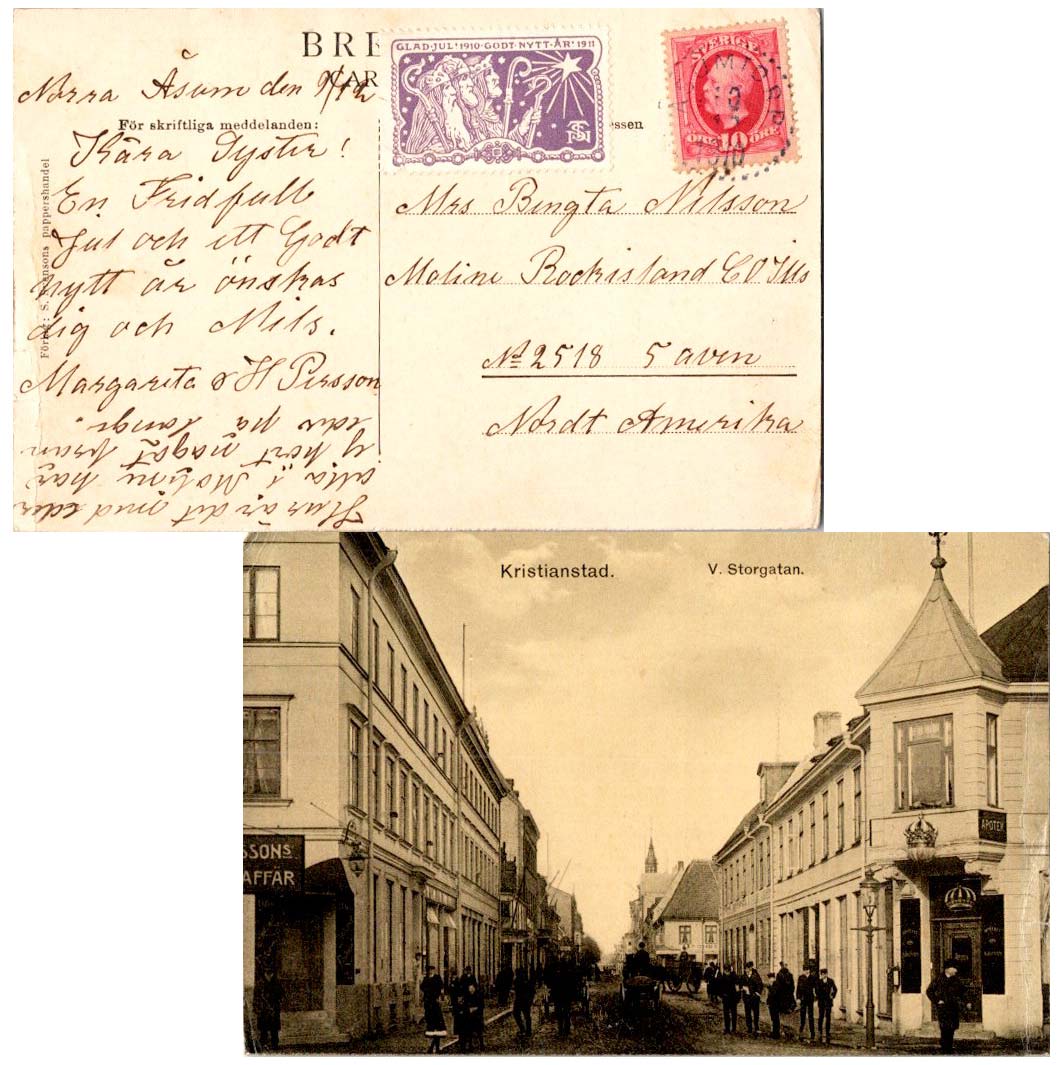 BRE
KAR
GLAD·JUL·1910·GODT·NYTT·ÅR·1911
SVERIGE
10
ÖRE
Norra Åsum den 9/12
För skriftliga meddelanden:
essen
Kära Syster!
En Fridfull
Jul och ett Godt
nytt år önskas
dig och Nils.
Margareta & H Persson
Hur är det med eder
alla i Moline har
ej hört något från
eder på länge.
pappershandel
Mrs Bengta Nilsson
Moline Rockisland CO Ills
No 2518 5 aven
Nordt Amerika
Kristianstad.
V. Storgatan.
SSONS
AFFÄR
APOTEK